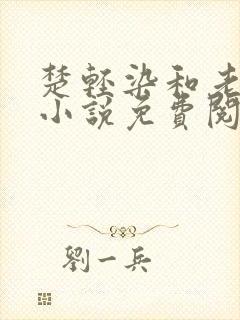 楚轻染和老
小说免費閱
劉一兵